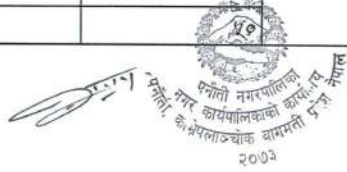 ५०
पनौती नगरपालिका
नगर कार्यपालिकाको कार्यालय
पनौती, काभ्रेपलाञ्चोक बागमती प्रदेश नेपाल
२०७३